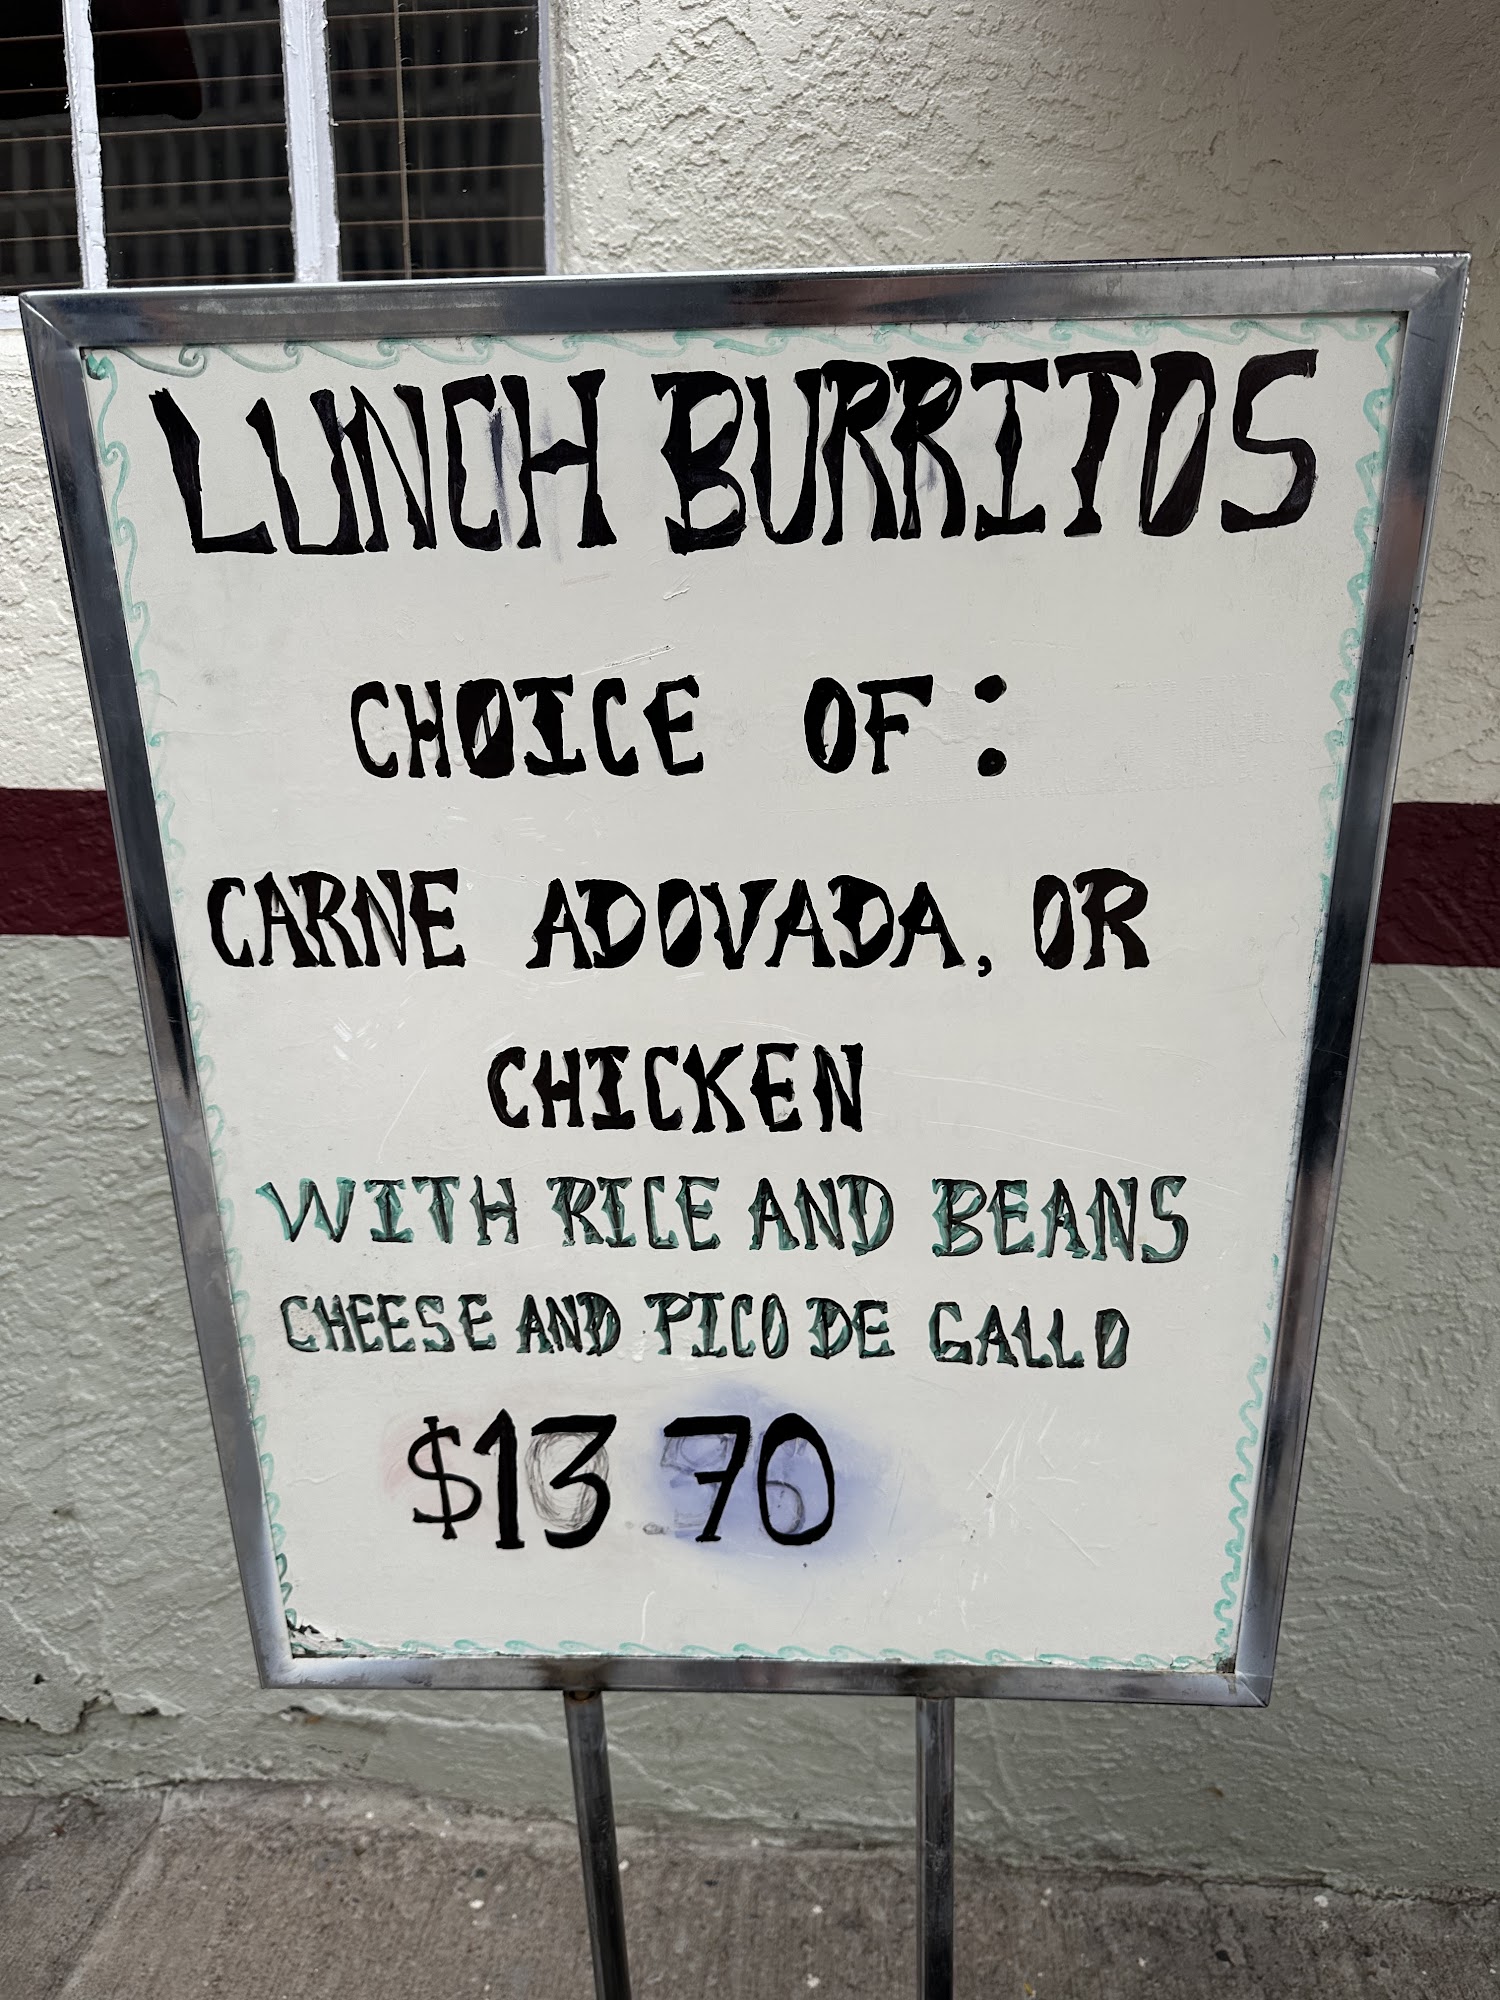 LUNCH BURRITOS
CHOICE OF:
CARNE ADOVADA, OR
CHICKEN
WITH RICE AND BEANS
CHEESE AND PICO DE GALLO
$13 70